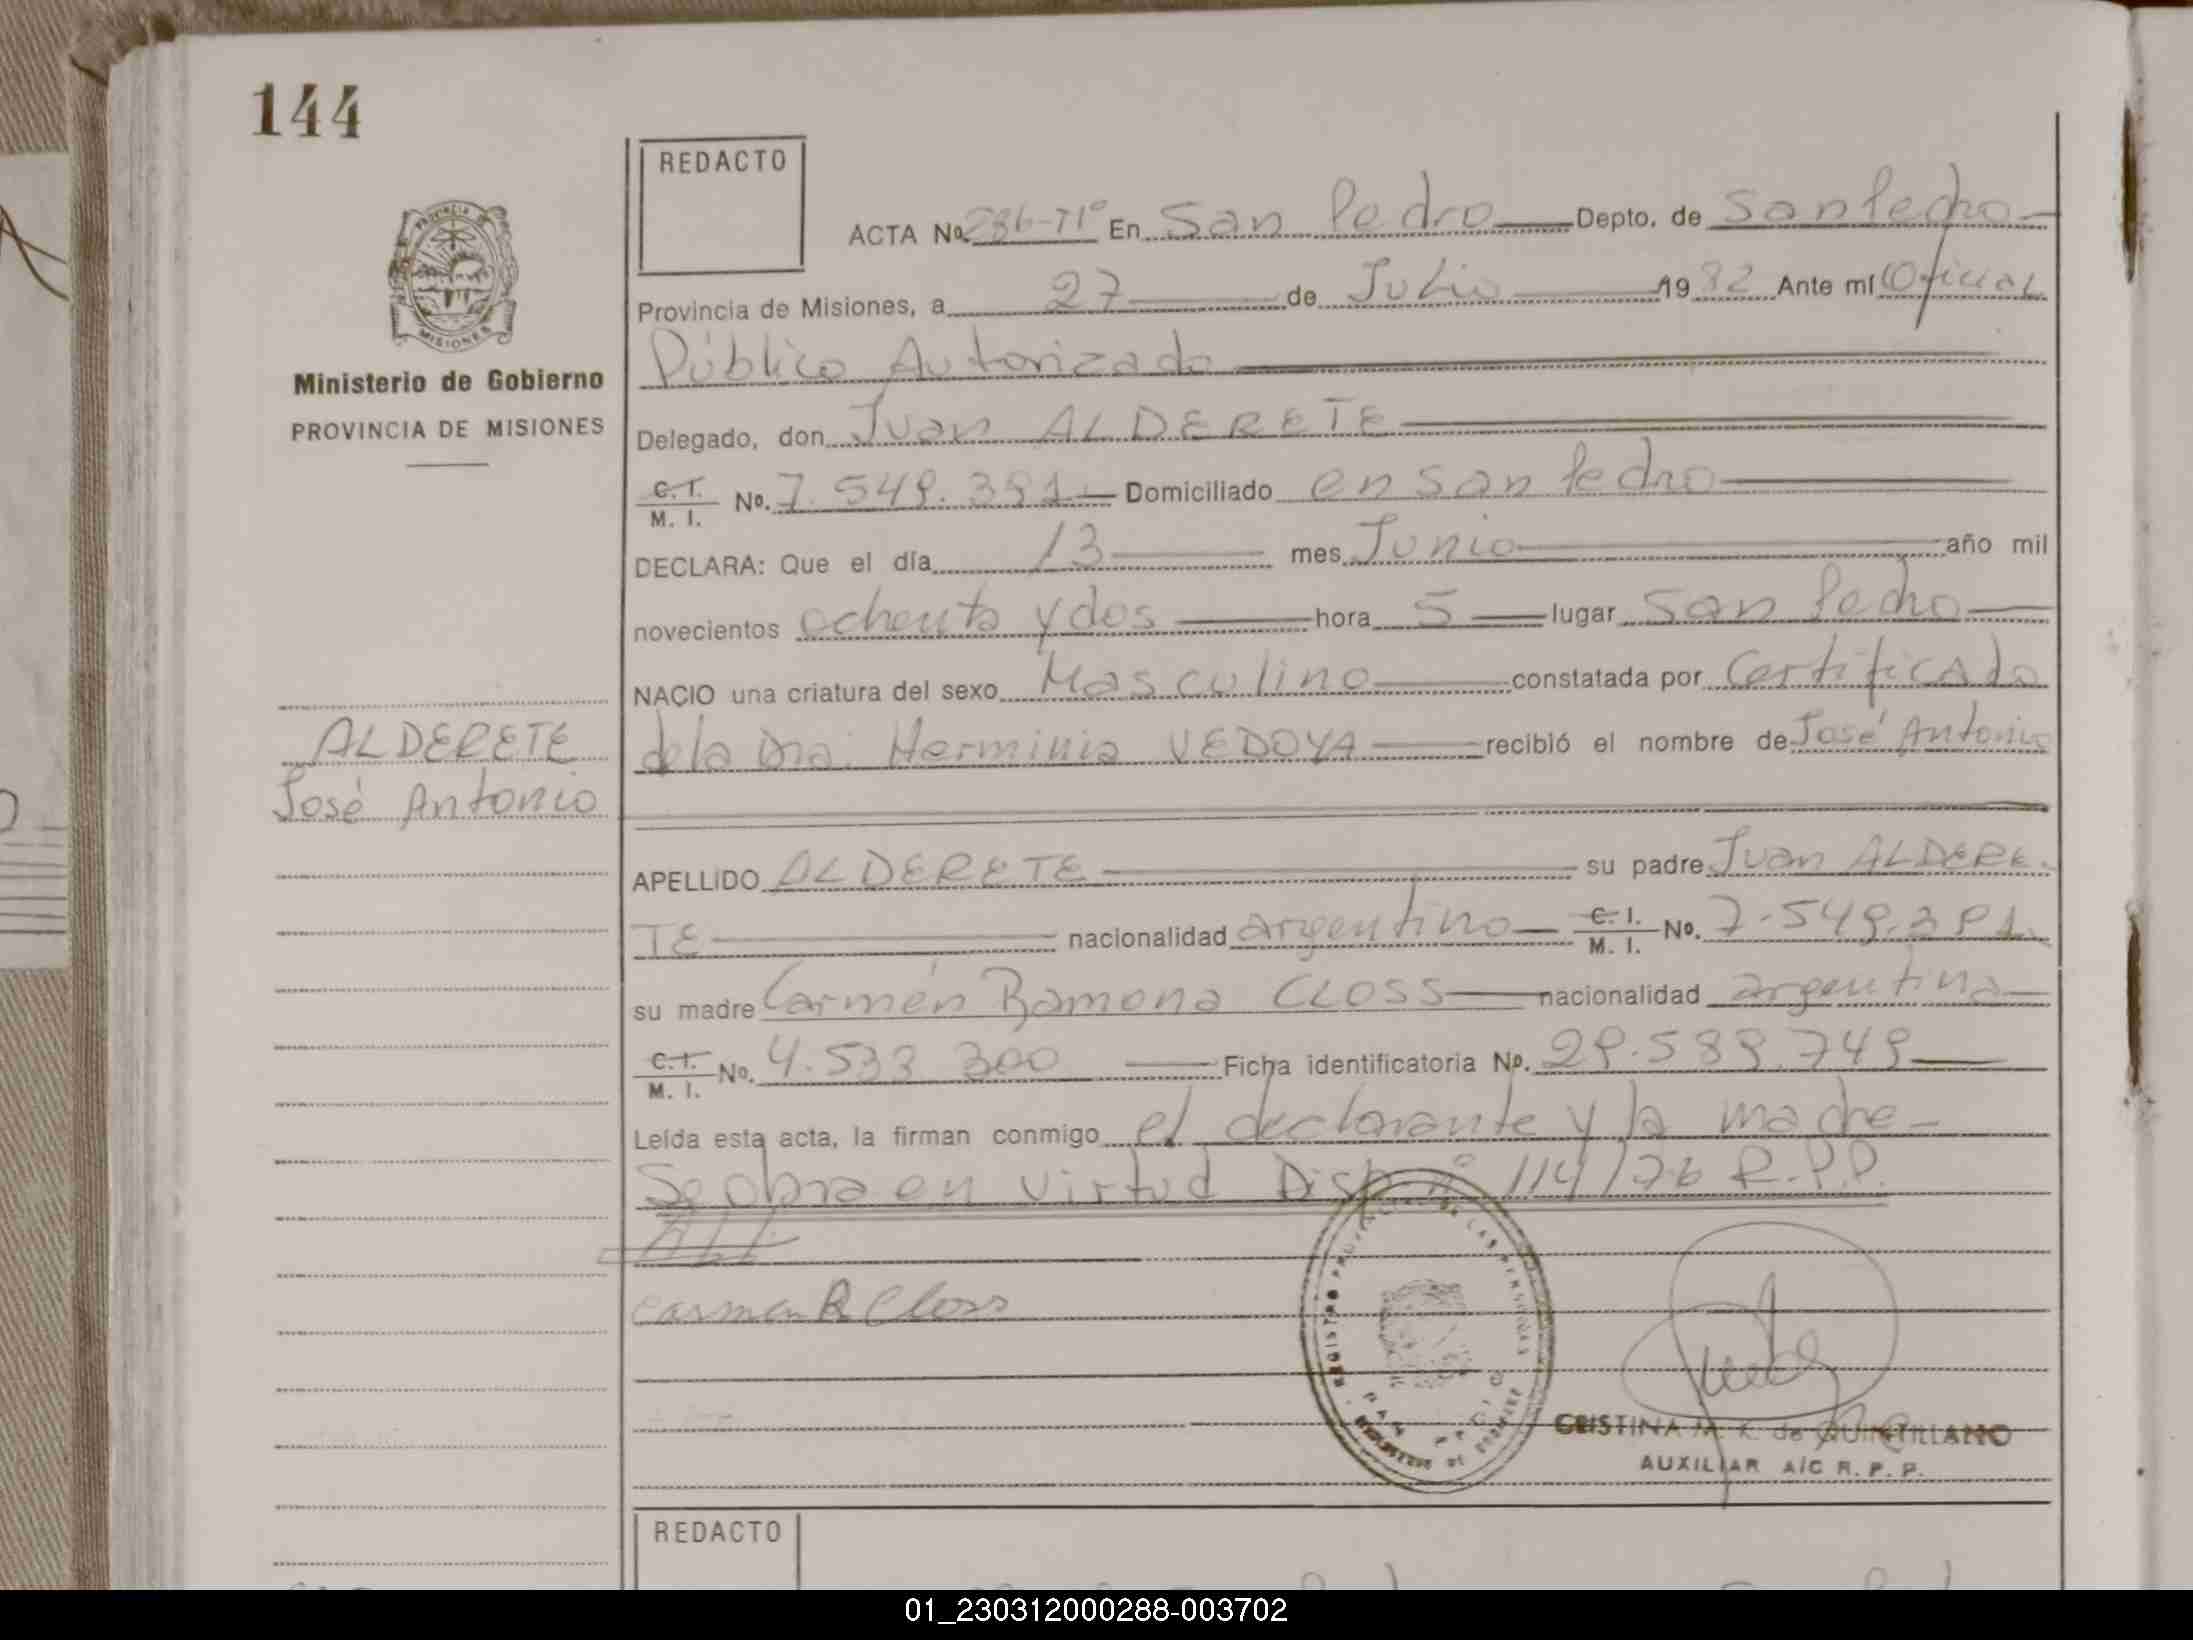 144
REDACTO
ACTA Nº 286-Tº En San Pedro Depto. de San Pedro
Provincia de Misiones, a 27 de Julio 1982 Ante mí Oficial
Público Autorizado
Delegado, don Juan ALDERETE
C.I. M. I. Nº. 7.549.391 Domiciliado en San Pedro
DECLARA: Que el día 13 mes Junio año mil
novecientos ochenta y dos hora 5 lugar San Pedro
NACIO una criatura del sexo Masculino constatada por Certificado
de la Dra. Herminia VEDOYA recibió el nombre de José Antonio
APELLIDO ALDERETE su padre Juan ALDERE-
TE nacionalidad argentino C.I. M. I. Nº. 7.549.391
su madre Carmén Ramona CLOSS nacionalidad argentina
C.I. M. I. Nº. 4.533 300 Ficha identificatoria Nº. 29.589.749
Leída esta acta, la firman conmigo el declarante y la madre-
Se obra en virtud Disp. nº 114/76 R.P.P.
Carmen R Closs
CRISTINA M. K. de QUINTILLANO
AUXILIAR A/C R. P. P.
PROVINCIA DE MISIONES
Ministerio de Gobierno
PROVINCIA DE MISIONES
ALDERETE
José Antonio
REDACTO
01_230312000288-003702